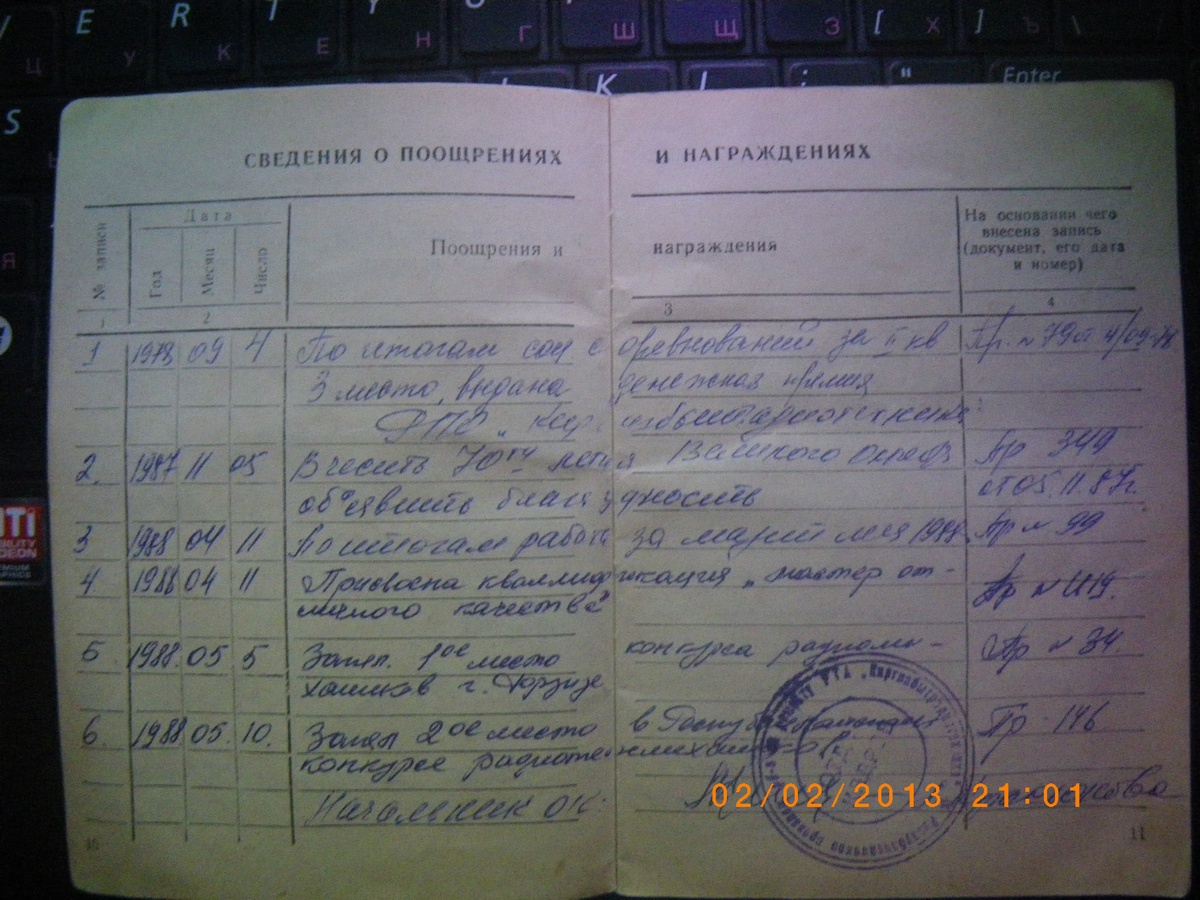 E R T Y
У К Е Н Г Ш Щ З [ Х ] Ъ \
S K L ; " Enter
СВЕДЕНИЯ О ПООЩРЕНИЯХ И НАГРАЖДЕНИЯХ
№ записи Дата Поощрения и награждения На основании чего внесена запись (документ, его дата и номер)
Год Месяц Число
1 2 3 4
1 1978 09 4 По итогам соц соревнований за II кв Пр. № 79 от 4/09-78
3 место, выдана денежная премия
РПО
2. 1987 11 05 В честь 70ти летия Великого Октября Пр 349
объявить благодарность от 05.11.87г.
3 1988 04 11 По итогам работы за март м-ц 1988. Пр № 99
4. 1988 04 11 Присвоена квалификация „мастер от-
личного качества" Пр №
5 1988. 05 5 Занял 1ое место конкурса радиоме- Пр № 34.
хаников г. Фрунзе
6. 1988 05. 10. Занял 2ое место в Республиканском Пр 146
конкурсе радиотелемехаников
Начальник ОК
02/02/2013 21:01
10 11
ATI
RADEON
PREMIUM
GRAPHICS